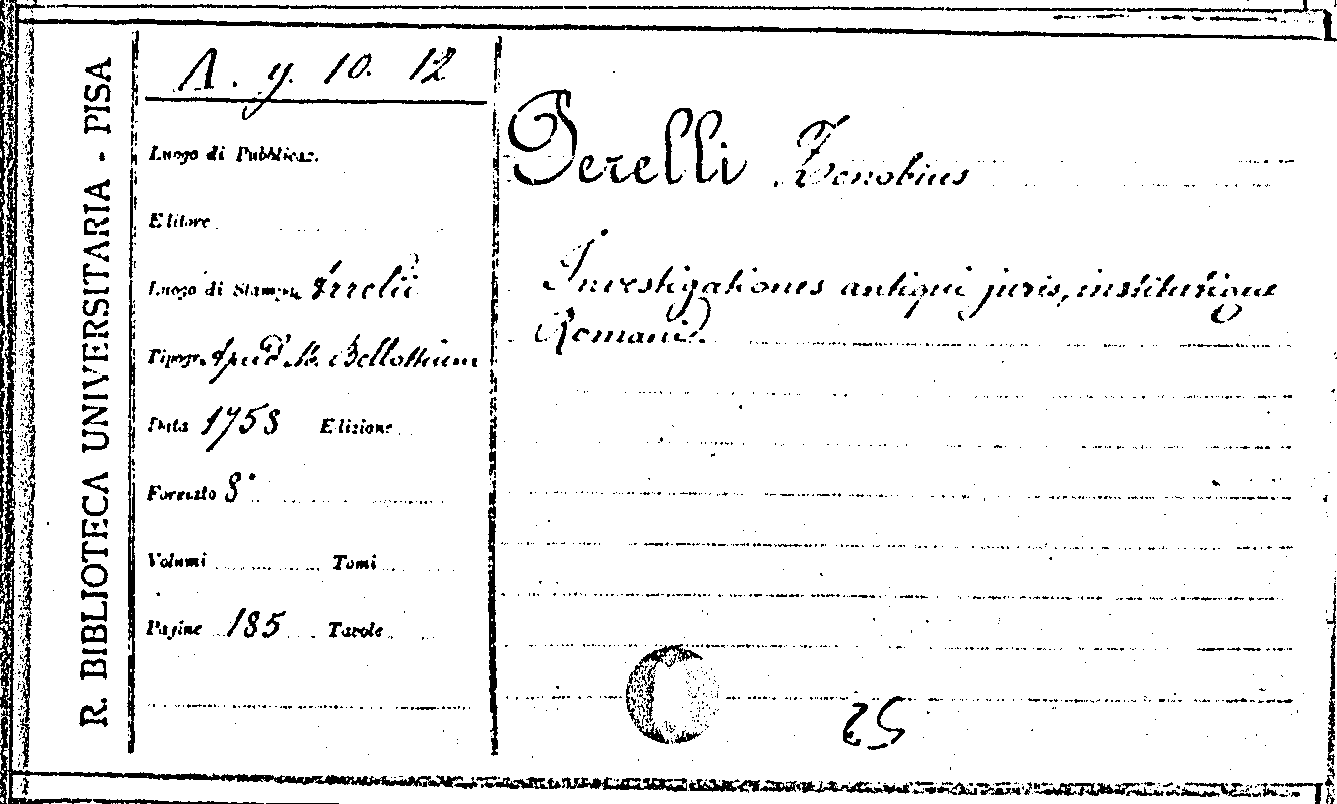 R. BIBLIOTECA UNIVERSITARIA - PISA
Λ. y. 10. 12
Luogo di Pubblicaz.
Editore
Luogo di Stampa Arretii
Tipogr. Apud M. Bellottium
Data 1758 Edizione
Formato 8°
Volumi Tomi
Pagine 185 Tavole
Perelli Zenobius
Investigationes antiqui juris, institutique
Romani.
25